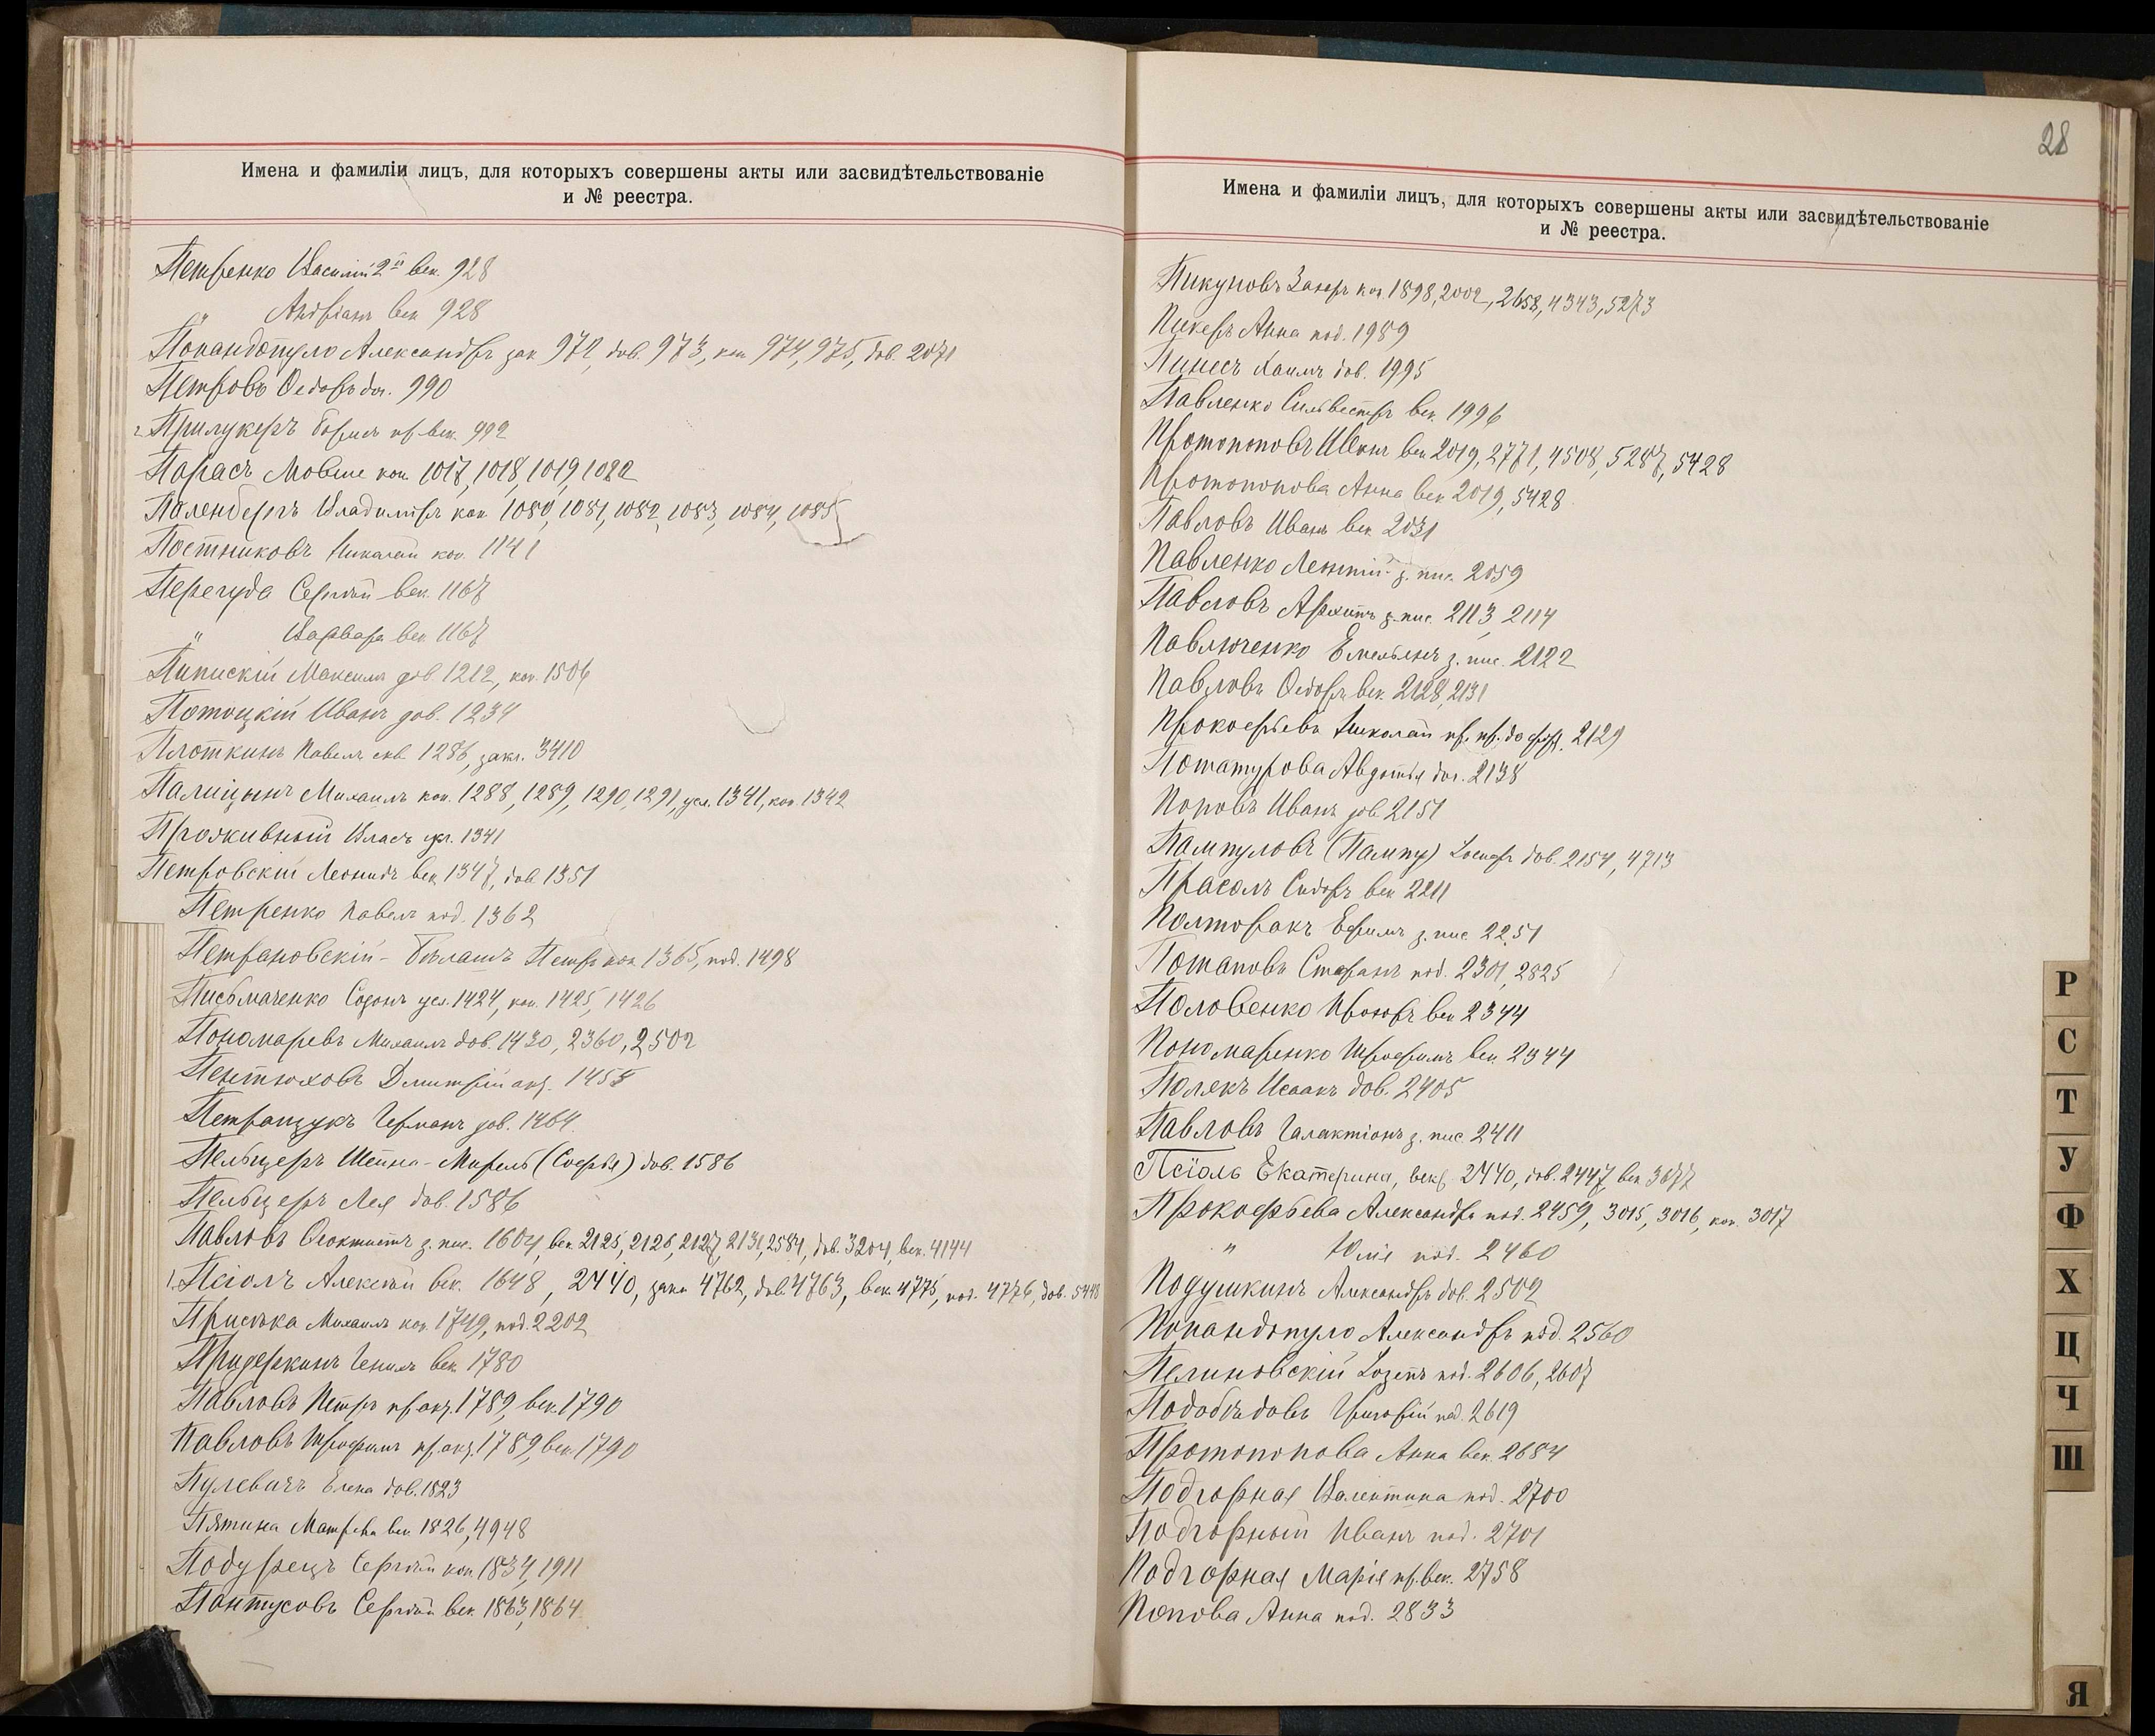 Имена и фамиліи лицъ, для которыхъ совершены акты или засвидѣтельствованіе
и № реестра.
Петренко Василій 2й век. 928
" Андріанъ век 928
Попандопуло Александръ зак 972, дов. 973, коп 974, 975, дов. 2071
Петровъ Ѳедоръ дог. 990
Прилукеръ Борисъ пр. век. 992
Парасъ Мовше коп. 1017, 1018, 1019, 1022
Паленбергъ Владиміръ коп 1080, 1081, 1082, 1083, 1084, 1085
Постниковъ Николай коп. 1141
Перегуда Сергѣй век. 1167
" Варвара век 1167
Липискій Максимъ дов 1212, коп. 1506
Потоцкій Иванъ дов. 1234
Плоткинъ Павелъ 1286, закл. 3410
Палицынъ Михаилъ коп. 1288, 1289, 1290, 1291, усл. 1341, коп 1342
Проживный Власъ 1341
Петровскій Леонидъ век 1347, дов 1351
Петренко Павелъ под. 1362
Петрановскій-Бѣлашъ Петръ коп 1365, под. 1498
Письмаченко Созонъ усл. 1424, коп. 1425, 1426
Пономаревъ Михаилъ дов. 1430, 2360, 2502
Пентюховъ Дмитрій 1455
Петращукъ Германъ дов. 1464
Пельцеръ Шейна-Мирель (Софья) дов. 1586
Пельцеръ Лея дов. 1586
Павловъ Ѳеоктистъ з. пис. 1604, век 2125, 2126, 2127, 2131, 2584, дов. 3204, век. 4144
Псіолъ Алексѣй век. 1648, 2440, закл 4762, дов. 4763, век 4775, под. 4776, дов. 5448
Присѣка Михаилъ коп. 1749, под. 2202
Придеркинъ век 1780
Павловъ Петръ пр. акц. 1789, век. 1790
Павловъ Трофимъ пр. акц. 1789, век. 1790
Пулевичъ Елена дов. 1823
Пятина Матрена век 1826, 4948
Подурецъ Сергѣй коп 1834, 1911
Пантусовъ Сергѣй век 1863, 1864
28
Имена и фамиліи лицъ, для которыхъ совершены акты или засвидѣтельствованіе
и № реестра.
Пикуповъ Захаръ коп. 1898, 2002, 2658, 4343, 5273
Пикеръ Анна под. 1989
Пинесъ Хаимъ дов. 1995
Павленко Сильвестръ век 1996
Протопоповъ Иванъ век 2019, 2771, 4508, 5287, 5428
Протопопова Анна век 2019, 5428
Павловъ Иванъ век 2031
Павленко Леонтій з. пис. 2059
Павловъ Архипъ з. пис. 2113, 2114
Павлюченко Емельянъ з. пис. 2122
Павловъ Ѳедоръ век. 2128, 2131
Прокофьевъ Николай 2129
Потатурова Авдотья дог. 2138
Поповъ Иванъ дов 2151
Пампуловъ (Пампу) Іосифъ дов. 2154, 4713
Прасолъ Сидоръ век 2211
Полторакъ Ефимъ з. пис 2251
Потаповъ Стефанъ под. 2301, 2825
Половенко Прохоръ век 2344
Пономаренко Трофимъ век 2344
Полякъ Исаакъ дов. 2405
Павловъ Галактіонъ з. пис 2411
Псіолъ Екатерина, век. 2440, дов. 2447, век 3677
Прокофьева Александра под. 2459, 3015, 3016, коп. 3017
" Юлія под. 2460
Подушкинъ Александръ дов. 2502
Попандопуло Александръ под. 2560
Пелиновскій Іозепъ под. 2606, 2607
Подобѣдовъ Григорій под. 2619
Протопопова Анна век. 2684
Подгорная Валентина под. 2700
Подгорный Иванъ под. 2701
Подгорная Марія пр. век. 2758
Попова Анна под. 2833
Р
С
Т
У
Ф
Х
Ц
Ч
Ш
Я